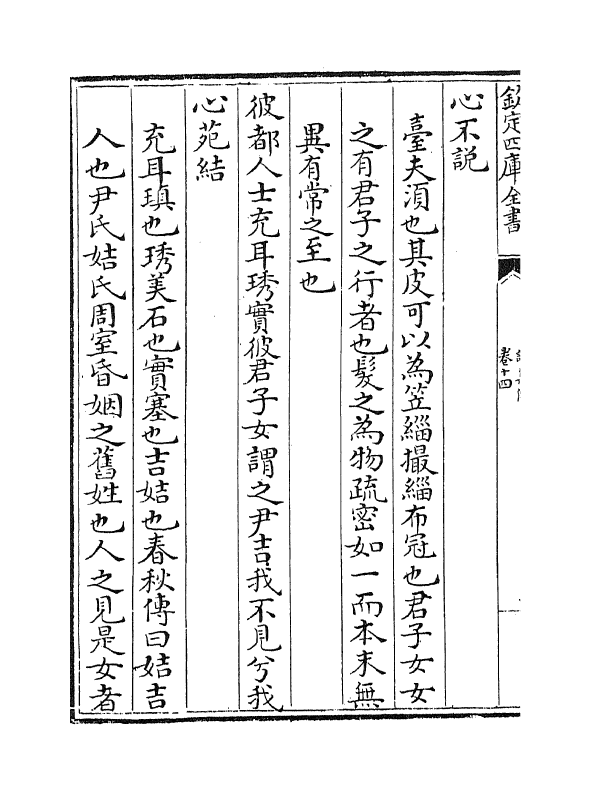 欽定四庫全書
卷十四
心不説
臺夫湏也其皮可以為笠緇撮緇布冠也君子女女
之有君子之行者也髮之為物疏密如一而本末無
異有常之至也
彼都人士充耳琇實彼君子女謂之尹吉我不見兮我
心苑結
充耳瑱也琇美石也實塞也吉姞也春秋傳曰姞吉
人也尹氏姞氏周室昏姻之舊姓也人之見是女者